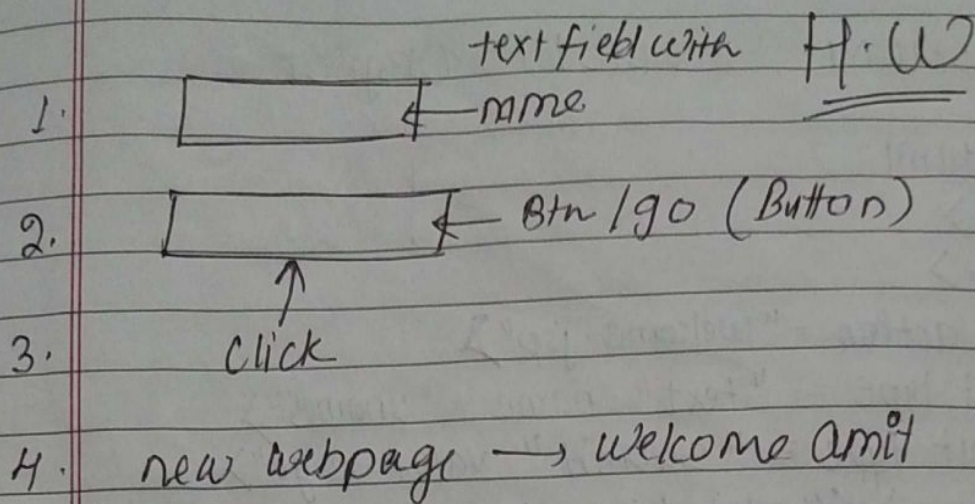 text field with H.W
1. name
2. Btn / go (Button)
3. Click
4. new webpage → welcome amit